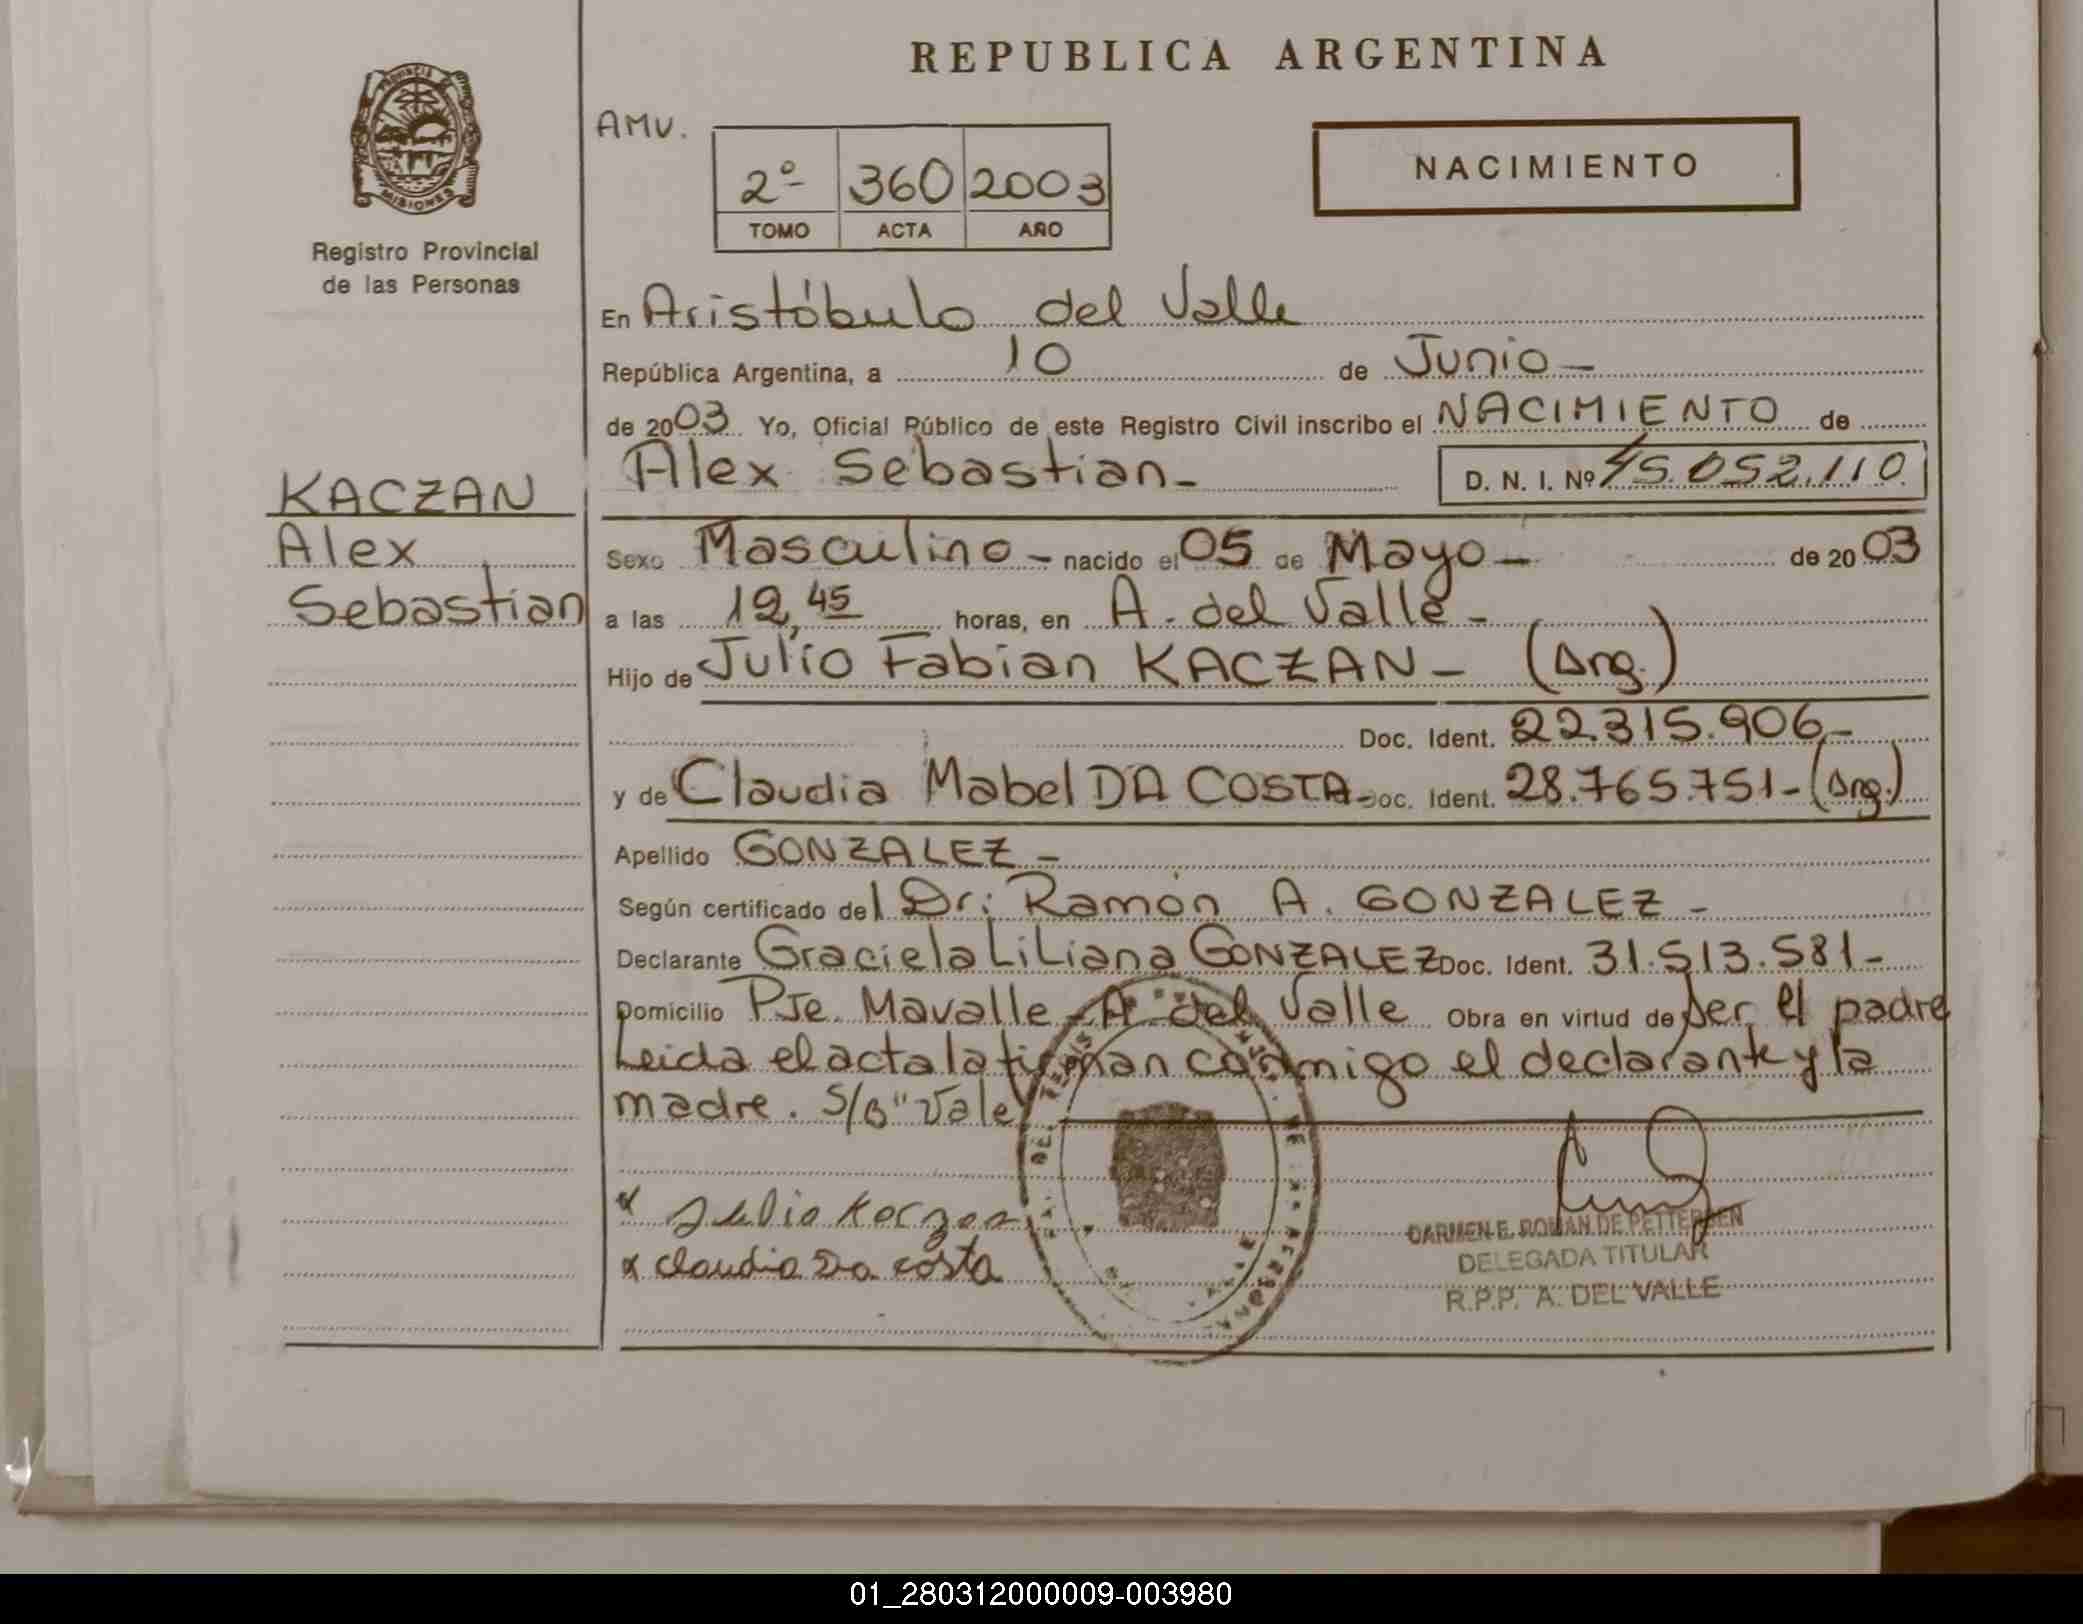 REPUBLICA ARGENTINA
PROVINCIA DE
MISIONES
Registro Provincial
de las Personas
AMV.
2º 360 2003
TOMO ACTA AÑO
NACIMIENTO
En Aristóbulo del Valle
República Argentina, a 10 de Junio -
de 2003 Yo, Oficial Público de este Registro Civil inscribo el NACIMIENTO de
Alex Sebastian - D. N. I. Nº 45.052.110
KACZAN
Alex
Sebastian
Sexo Masculino - nacido el 05 de Mayo - de 2003
a las 12,45 horas, en A. del Valle -
Hijo de Julio Fabian KACZAN - (Arg.)
Doc. Ident. 22.315.906 -
y de Claudia Mabel DA COSTA - Doc. Ident. 28.765.751 - (Arg.)
Apellido GONZALEZ -
Según certificado del Dr: Ramón A. GONZALEZ -
Declarante Graciela Liliana GONZALEZ Doc. Ident. 31.513.581 -
Domicilio Pje. Mavalle - A. del Valle Obra en virtud de ser el padre
Leida el acta la firman conmigo el declarante y la
madre. S/B "Vale
x Julio Kaczan
x Claudia Da costa
CARMEN E. ROMAN DE PETTERSEN
DELEGADA TITULAR
R.P.P. A. DEL VALLE
01_280312000009-003980